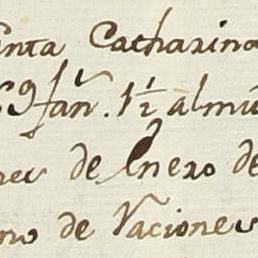 enta Catharina
69 fanˢ. 1½ almu
res de Enero de
no de Naciones